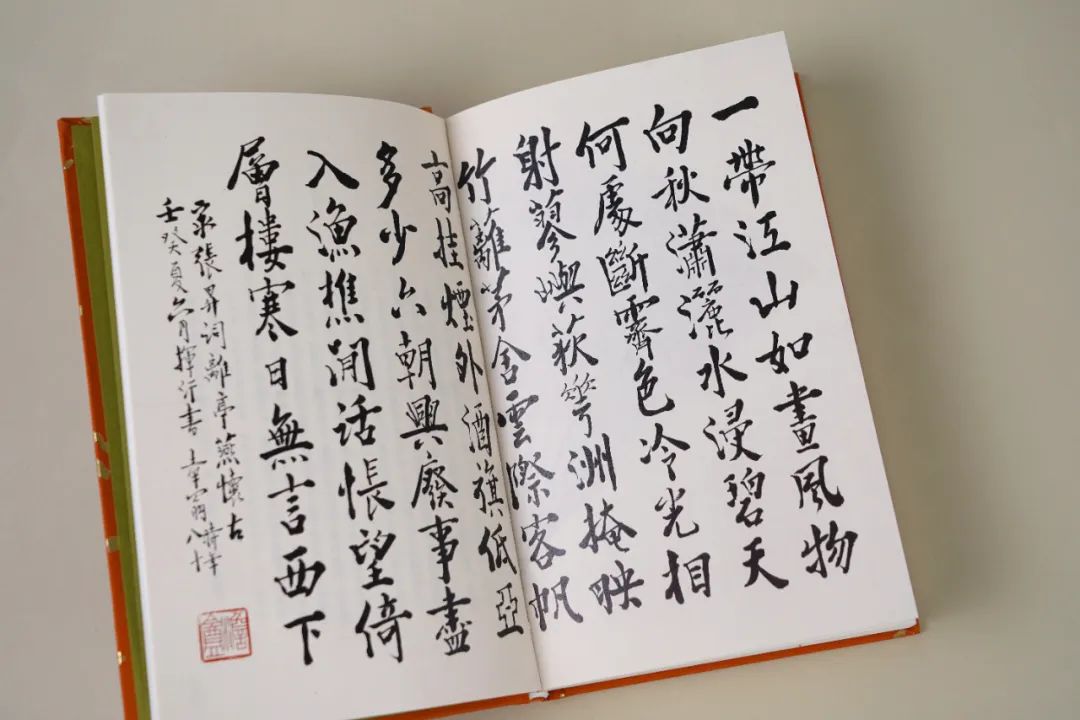 一帶江山如畫風物
向秋瀟灑水浸碧天
何處斷霽色冷光相
射蓼嶼荻洲掩映
竹籬茅舍雲際客帆
高挂煙外酒旗低亞
多少六朝興廢事盡
入漁樵閒話悵望倚
層樓寒日無言西下
宋張昇詞離亭燕懷古
壬癸夏六月揮汗書